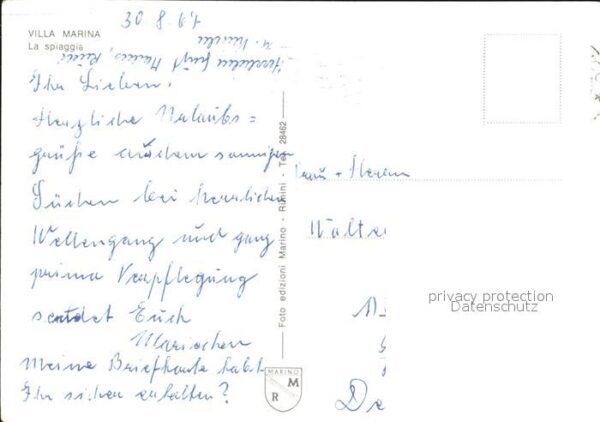 VILLA MARINA
La spiaggia
30. 8. 61
Ihr Lieben!
Herzliche Urlaubs=
grüße aus dem sonnigen
Süden bei herrlichen
Wellengang und ganz
prima Verpflegung
sendet Euch
Mariechen
Meine Briefkarte habt
Ihr sicher erhalten?
Foto edizioni Marino - Rimini - Tel. 28462
MARINO
M
R
Frau + Herrn
Walter
privacy protection
Datenschutz